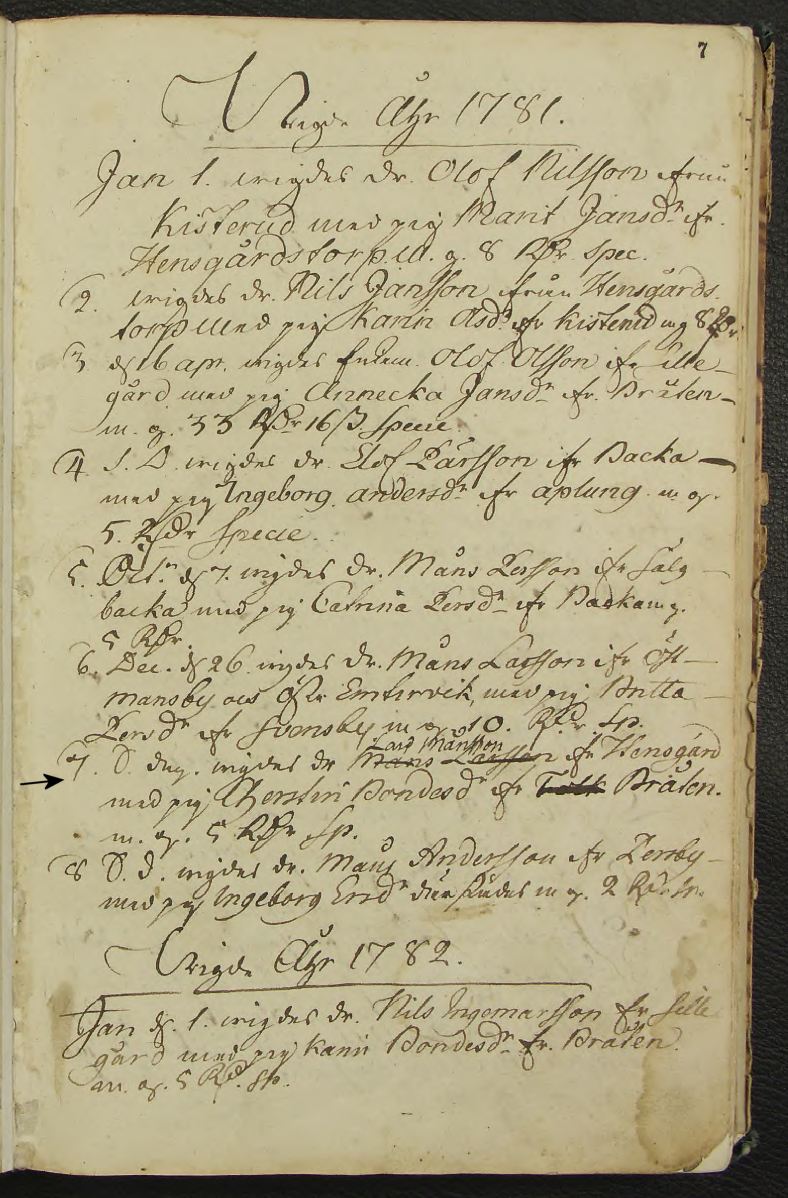 7
Vigde Åhr 1781.
Jan 1. wigdes dr. Olof Nilsson ifrån
Kisterud med pig Marit Jansdr. ifr.
Hensgårdstorp m. g. 8 Rdr. Spec.
2. wigdes dr. Nils Jansson ifrån Hensgårds
torp med pig Karin Olsdr. ifr Kisterud m g 8 Rdr
3 d 16 apr. wigdes Olof Olsson ifr Sille-
gård med pig Annecka Jansdr. ifr. Bråten-
m. g. 33 Rdr 16 ß Specie.
4 S. D. wigdes dr. Elof Pärsson ifr Backa
med pig Ingeborg andersdr. ifr aplung m g.
5. Rdr Specie.
5. Oct. d 7. wigdes dr. Måns Persson ifr Sälg-
backa med pig Catrina Persdr. ifr Backa m g.
5 Rdr.
6. Dec. d 26 wigdes dr. Måns Larsson ifr Öst-
mansby Emtervik, med pig Britta
Persdr ifr Svensby m g 10. Rdr Sp.
Lars Månsson
7. D. dag. wigdes dr Måns Larsson ifr Hensgård
med pig Cherstin Bondesdr ifr Bråten.
m. g. 5 Rdr Sp.
8 D. d. wigdes dr. Måns Andersson ifr Persby-
med pig Ingeborg Ersdr m g. 2 Rdr Sp.
Vigde Åhr 1782.
Jan d. 1. wigdes dr. Nils Ingemarsson fr Sille
gård med pig Karin Bondesdr fr. Bråten.
m. g. 5 Rdr. Sp.